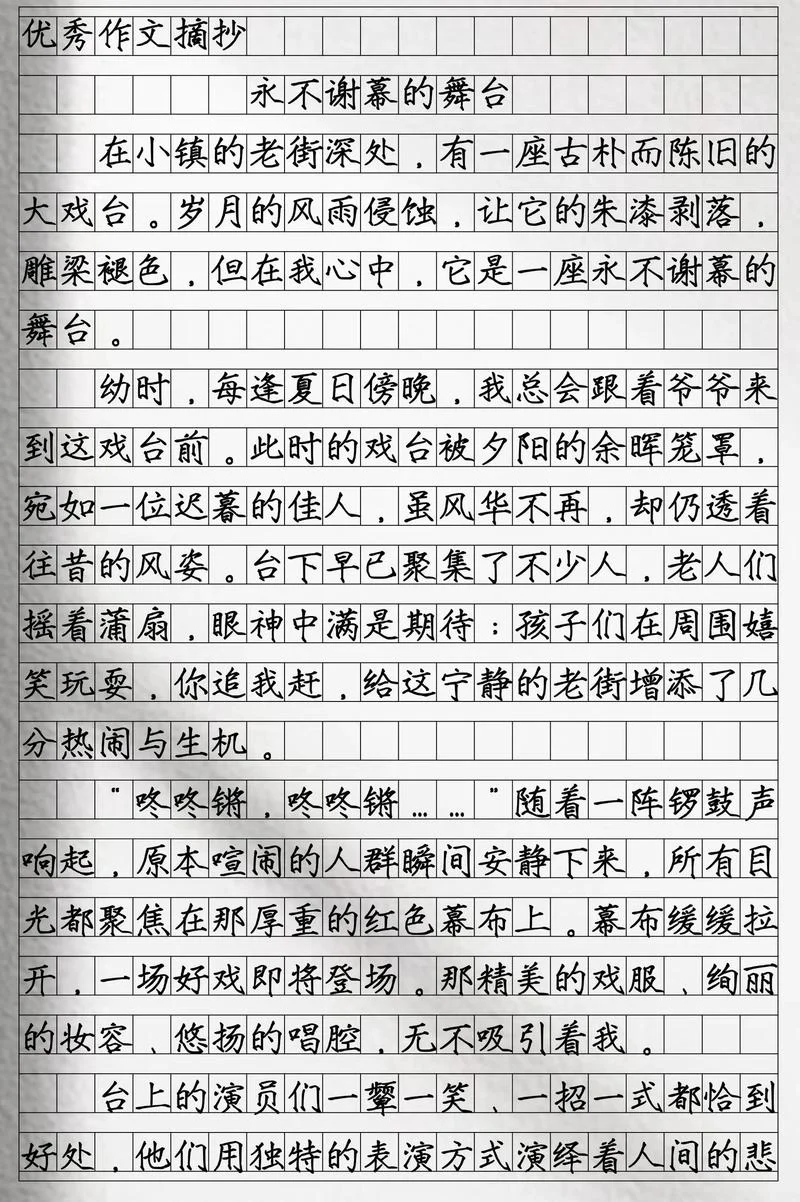 优秀作文摘抄
永不谢幕的舞台
在小镇的老街深处，有一座古朴而陈旧的
大戏台。岁月的风雨侵蚀，让它的朱漆剥落，
雕梁褪色，但在我心中，它是一座永不谢幕的
舞台。
幼时，每逢夏日傍晚，我总会跟着爷爷来
到这戏台前。此时的戏台被夕阳的余晖笼罩，
宛如一位迟暮的佳人，虽风华不再，却仍透着
往昔的风姿。台下早已聚集了不少人，老人们
摇着蒲扇，眼神中满是期待；孩子们在周围嬉
笑玩耍，你追我赶，给这宁静的老街增添了几
分热闹与生机。
“咚咚锵，咚咚锵……”随着一阵锣鼓声
响起，原本喧闹的人群瞬间安静下来，所有目
光都聚焦在那厚重的红色幕布上。幕布缓缓拉
开，一场好戏即将登场。那精美的戏服、绚丽
的妆容、悠扬的唱腔，无不吸引着我。
台上的演员们一颦一笑、一招一式都恰到
好处，他们用独特的表演方式演绎着人间的悲